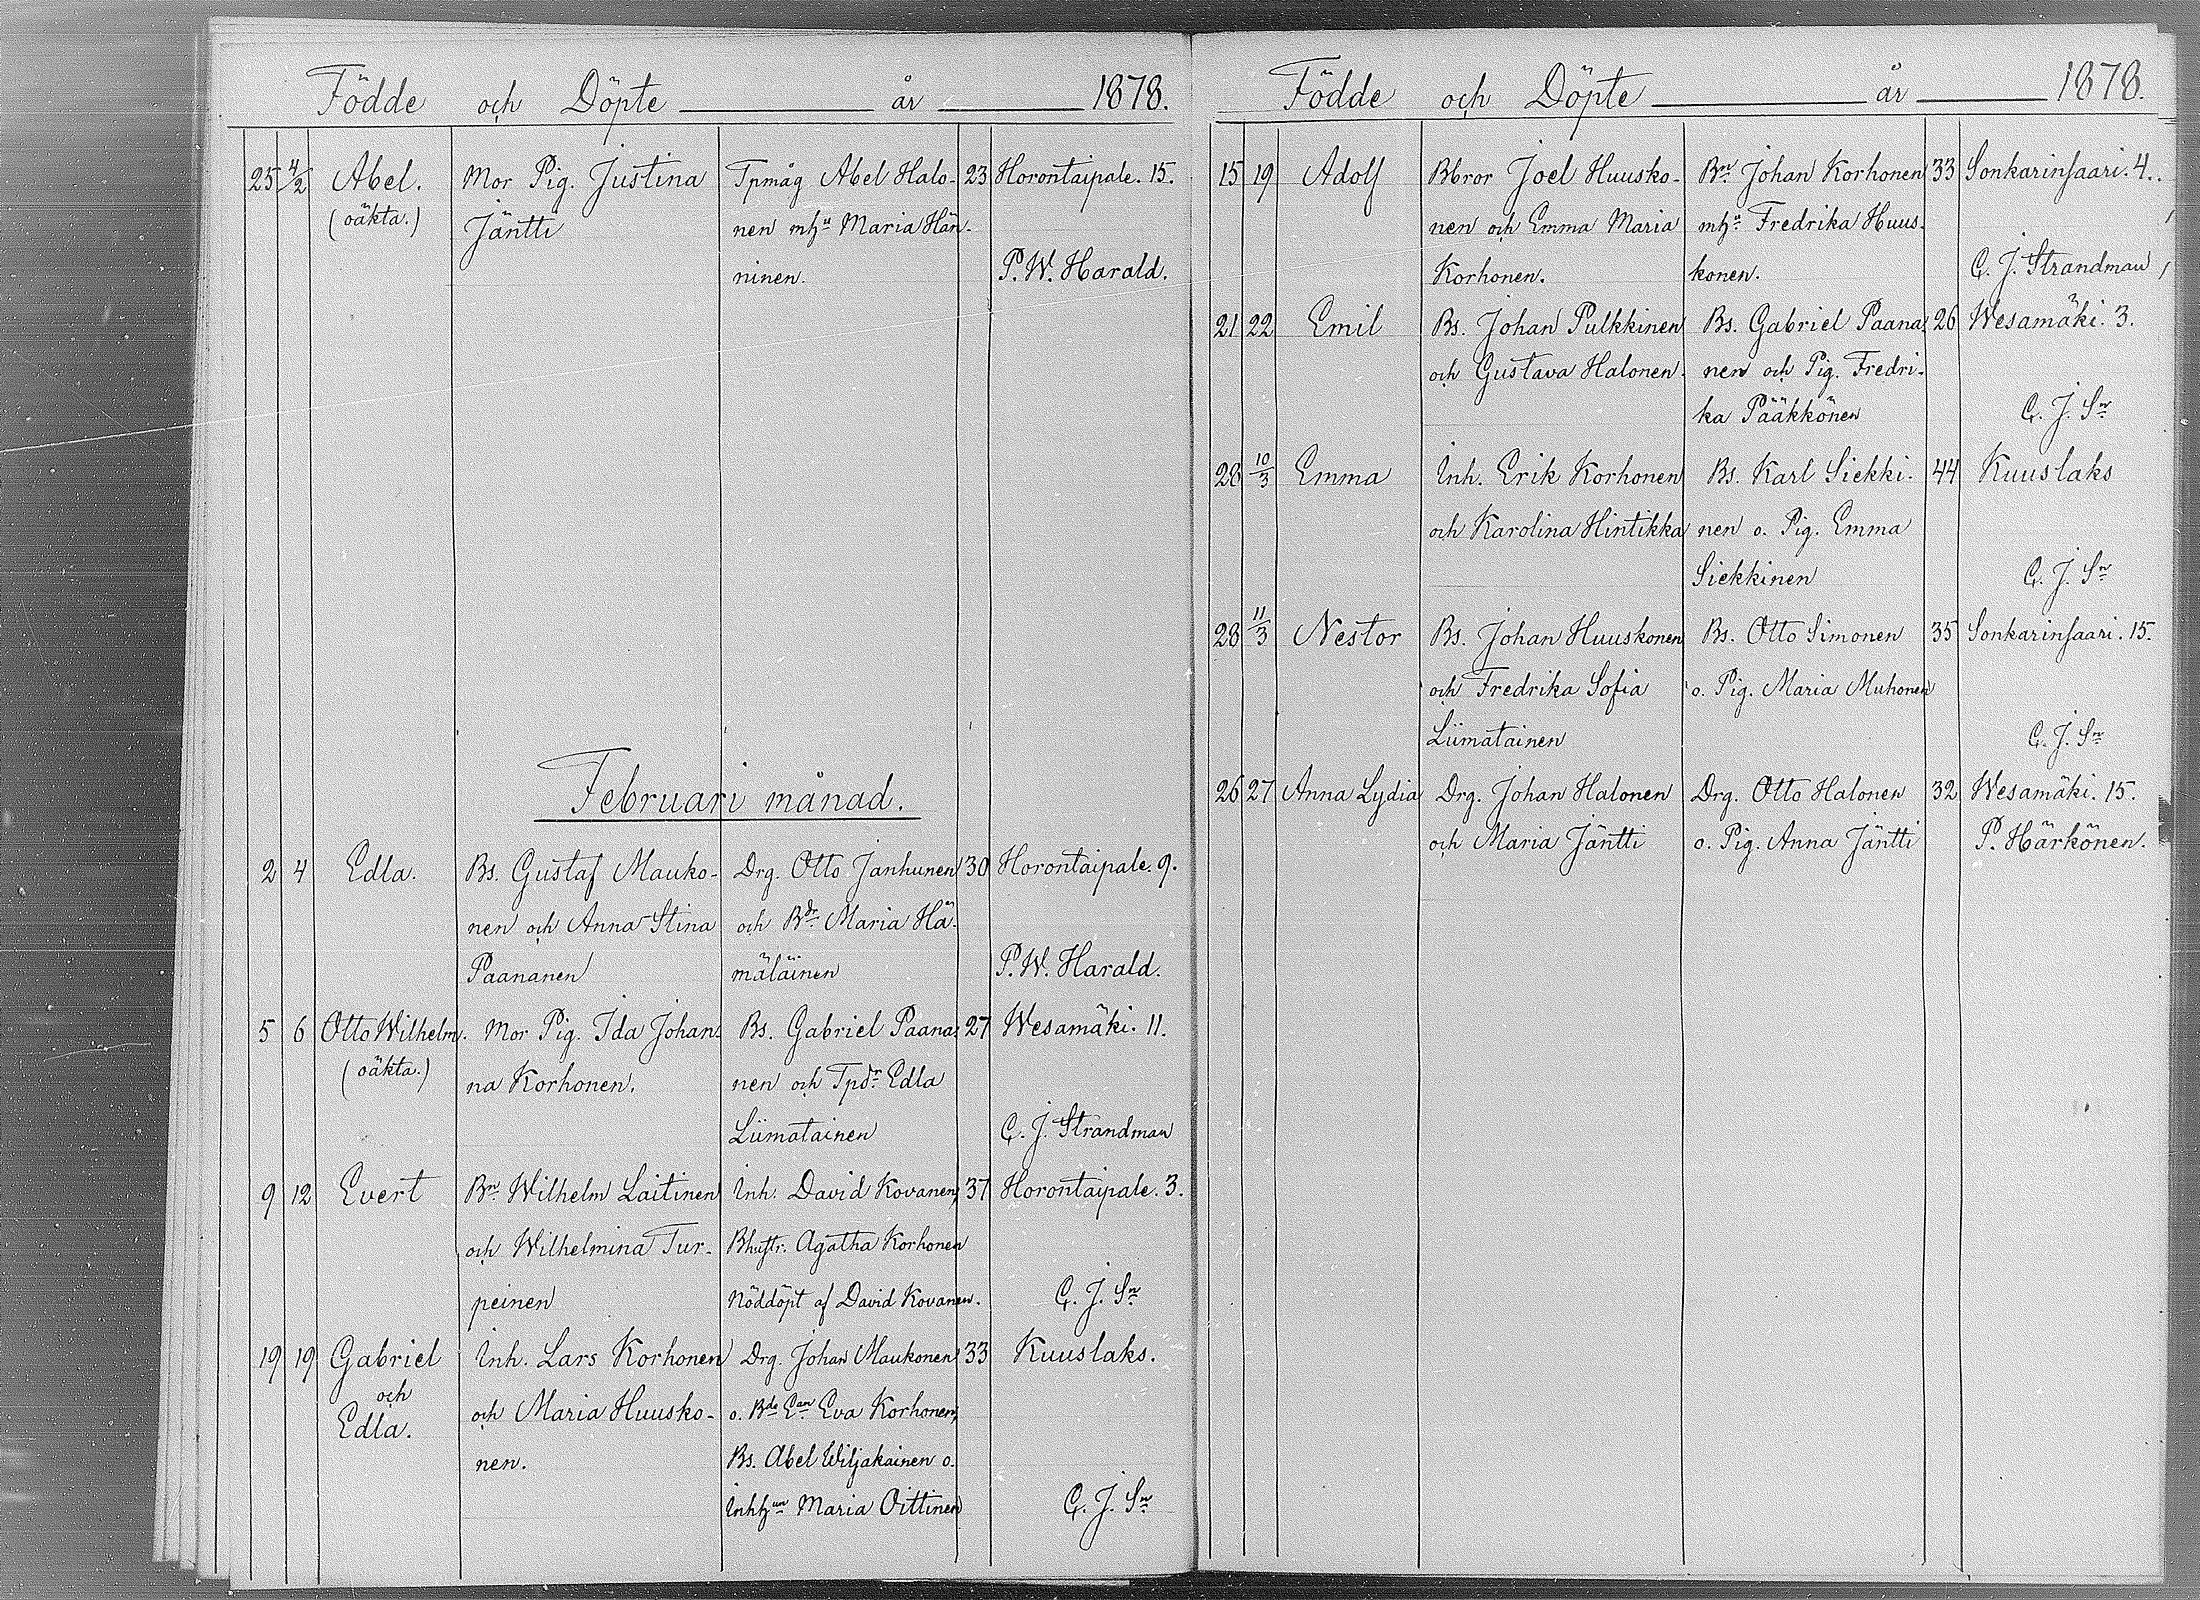 Födde och Döpte år 1878.
25 4/2 Abel. Mor Pig. Justina Tpmåg Abel Halo- 23 Horontaipale. 15.
(oäkta.) Jäntti nen mhu Maria Hän-
ninen. P. W. Harald.
Februari månad.
2 4 Edla. Bs. Gustaf Mauko- Drg. Otto Janhunen 30 Horontaipale. 9.
nen och Anna Stina och Bdr Maria Hä-
Paananen mäläinen P. W. Harald.
5 6 Otto Wilhelm. Mor Pig. Ida Johan- Bs. Gabriel Paana- 27 Wesamäki. 11.
(oäkta.) na Korhonen. nen och Tpdr Edla
Liimatainen C. J. Strandman
9 12 Evert Bn Wilhelm Laitinen Inh. David Kovanen, 37 Horontaipale. 3.
och Wilhelmina Tur- Bhustr. Agatha Korhonen
peinen Nöddöpt af David Kovanen. C. J. Sn
19 19 Gabriel Inh. Lars Korhonen Drg. Johan Maukonen 33 Kuuslaks.
och
Edla. och Maria Huusko- o. Bde Ean Eva Korhonen,
nen. Bs. Abel Wiljakainen o.
Inhhun Maria Oittinen C. J. Sn
Födde och Döpte år 1878.
15 19 Adolf Bbror Joel Huusko- Bn Johan Korhonen 33 Sonkarinsaari. 4.
nen och Emma Maria mhu Fredrika Huus-
Korhonen. konen. C. J. Strandman
21 22 Emil Bs. Johan Pulkkinen Bs. Gabriel Paana- 26 Wesamäki. 3.
och Gustava Halonen. nen och Pig. Fredri-
ka Pääkkönen C. J. Sn
28 10/3 Emma Inh. Erik Korhonen Bs. Karl Siekki- 44 Kuuslaks
och Karolina Hintikka nen o. Pig. Emma
Siekkinen C. J. Sn
28 11/3 Nestor Bs. Johan Huuskonen Bs. Otto Simonen 35 Sonkarinsaari. 15.
och Fredrika Sofia o. Pig. Maria Muhonen
Liimatainen C. J. Sn
26 27 Anna Lydia Drg. Johan Halonen Drg. Otto Halonen 32 Wesamäki. 15.
och Maria Jäntti o. Pig. Anna Jäntti P. Härkönen.